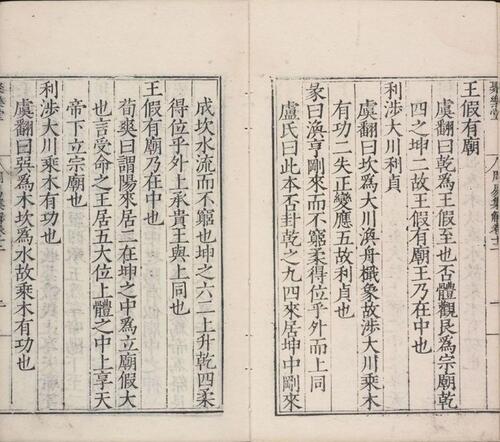 王假有廟
虞翻曰乾為王假至也否體觀艮為宗廟乾
四之坤二故王假有廟王乃在中也
利涉大川利貞
虞翻曰坎為大川渙舟檝象故涉大川乘木
有功二失正變應五故利貞也
彖曰渙亨剛來而不窮柔得位乎外而上同
盧氏曰此本否卦乾之九四來居坤中剛來
成坎水流而不窮也坤之六二上升乾四柔
得位乎外上承貴王與上同也
王假有廟乃在中也
荀爽曰謂陽來居二在坤之中為立廟假大
也言受命之王居五大位上體之中上享天
帝下立宗廟也
利涉大川乘木有功也
虞翻曰巽為木坎為水故乘木有功也